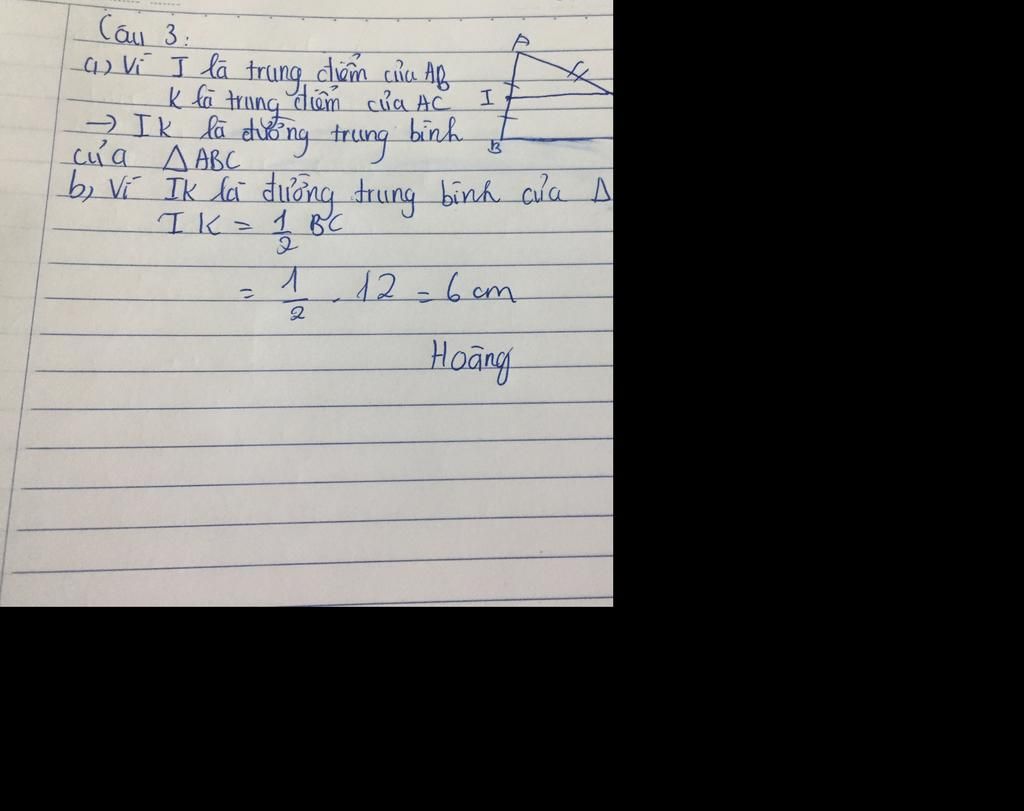 Câu 3:
a) Vì I là trung điểm của AB
K là trung điểm của AC
→ IK là đường trung bình
của △ABC
b) Vì IK là đường trung bình của △
IK = 1/2 BC
= 1/2 . 12 = 6 cm
Hoàng
A
I
B